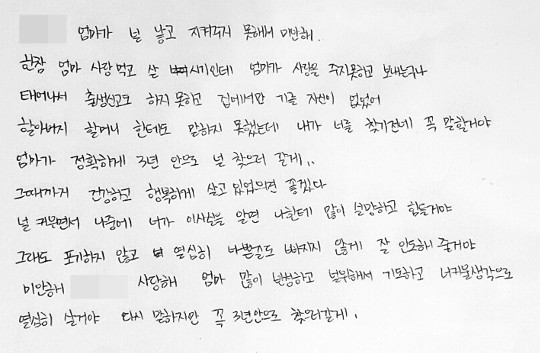 엄마가 널 낳고 지켜주지 못해서 미안해.
한참 엄마 사랑먹고 살 시기인데 엄마가 사랑을 주지못하고 보내는구나
태어나서 출생신고도 하지 못하고 집에서만 기를 자신이 없었어
할아버지 할머니 한테도 말하지 못했는데 내가 너를 찾기전에 꼭 말할거야
엄마가 정확하게 3년 안으로 널 찾으러 갈게..
그때까지 건강하고 행복하게 살고 있었으면 좋겠다
널 키우면서 나중에 너가 이사실을 알면 나한테 많이 실망하고 힘들거야
그래도 포기하지 않고 열심히 나쁜길로 빠지지 않게 잘 인도해 줄거야
미안해 사랑해 엄마 많이 반성하고 널위해서 기도하고 너키울생각으로
열심히 살거야 다시 말하지만 꼭 3년안으로 찾으러갈게.